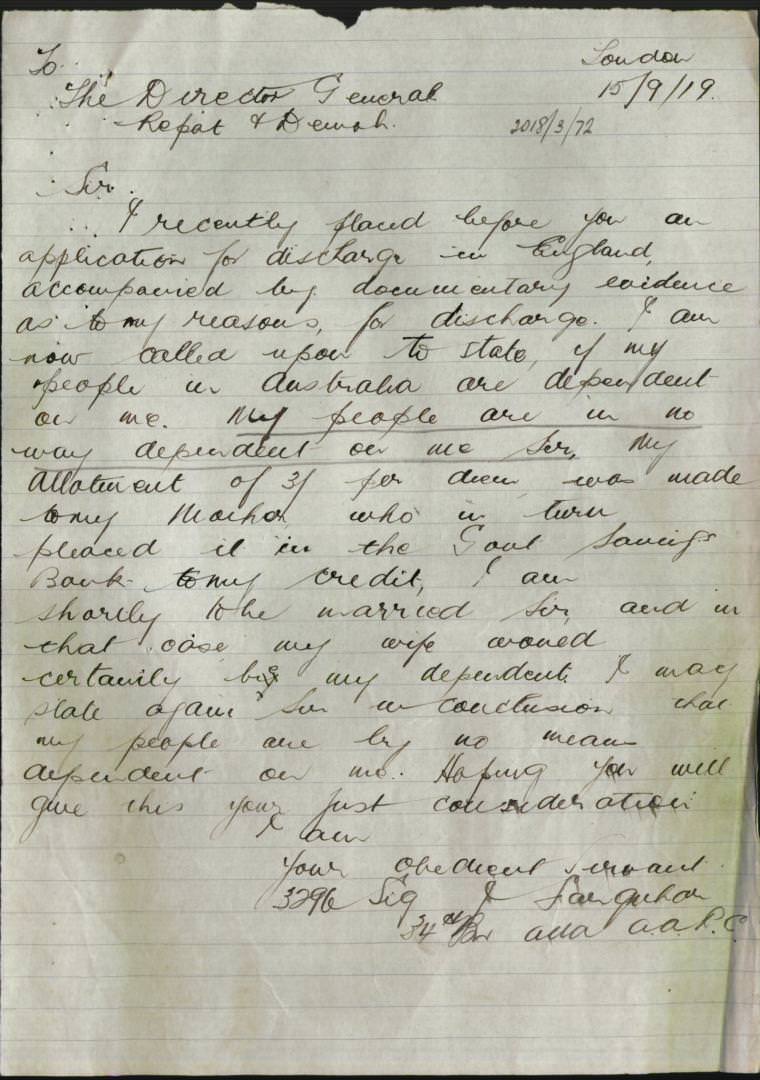 To
London
The Director General
15/9/19.
Repat & Demob.
2018/3/72
Sir.
I recently placed before you an
application for discharge in England,
accompanied by documentary evidence
as to my reasons, for discharge. I am
now called upon to state, if my
people in Australia are dependent
on me. My people are in no
way dependent on me Sir, My
allotment of 3/ per diem was made
to my Mother, who in turn
placed it in the Govt Savings
Bank to my credit, I am
shortly to be married Sir, and in
that case my wife would
certainly be my dependent. I may
state again Sir in conclusion that
my people are by no means
dependent on me. Hoping you will
give this your just consideration
I am
Your obedient Servant
3296 Sig J Farquhar
34th Bn attd A.A.P.C.